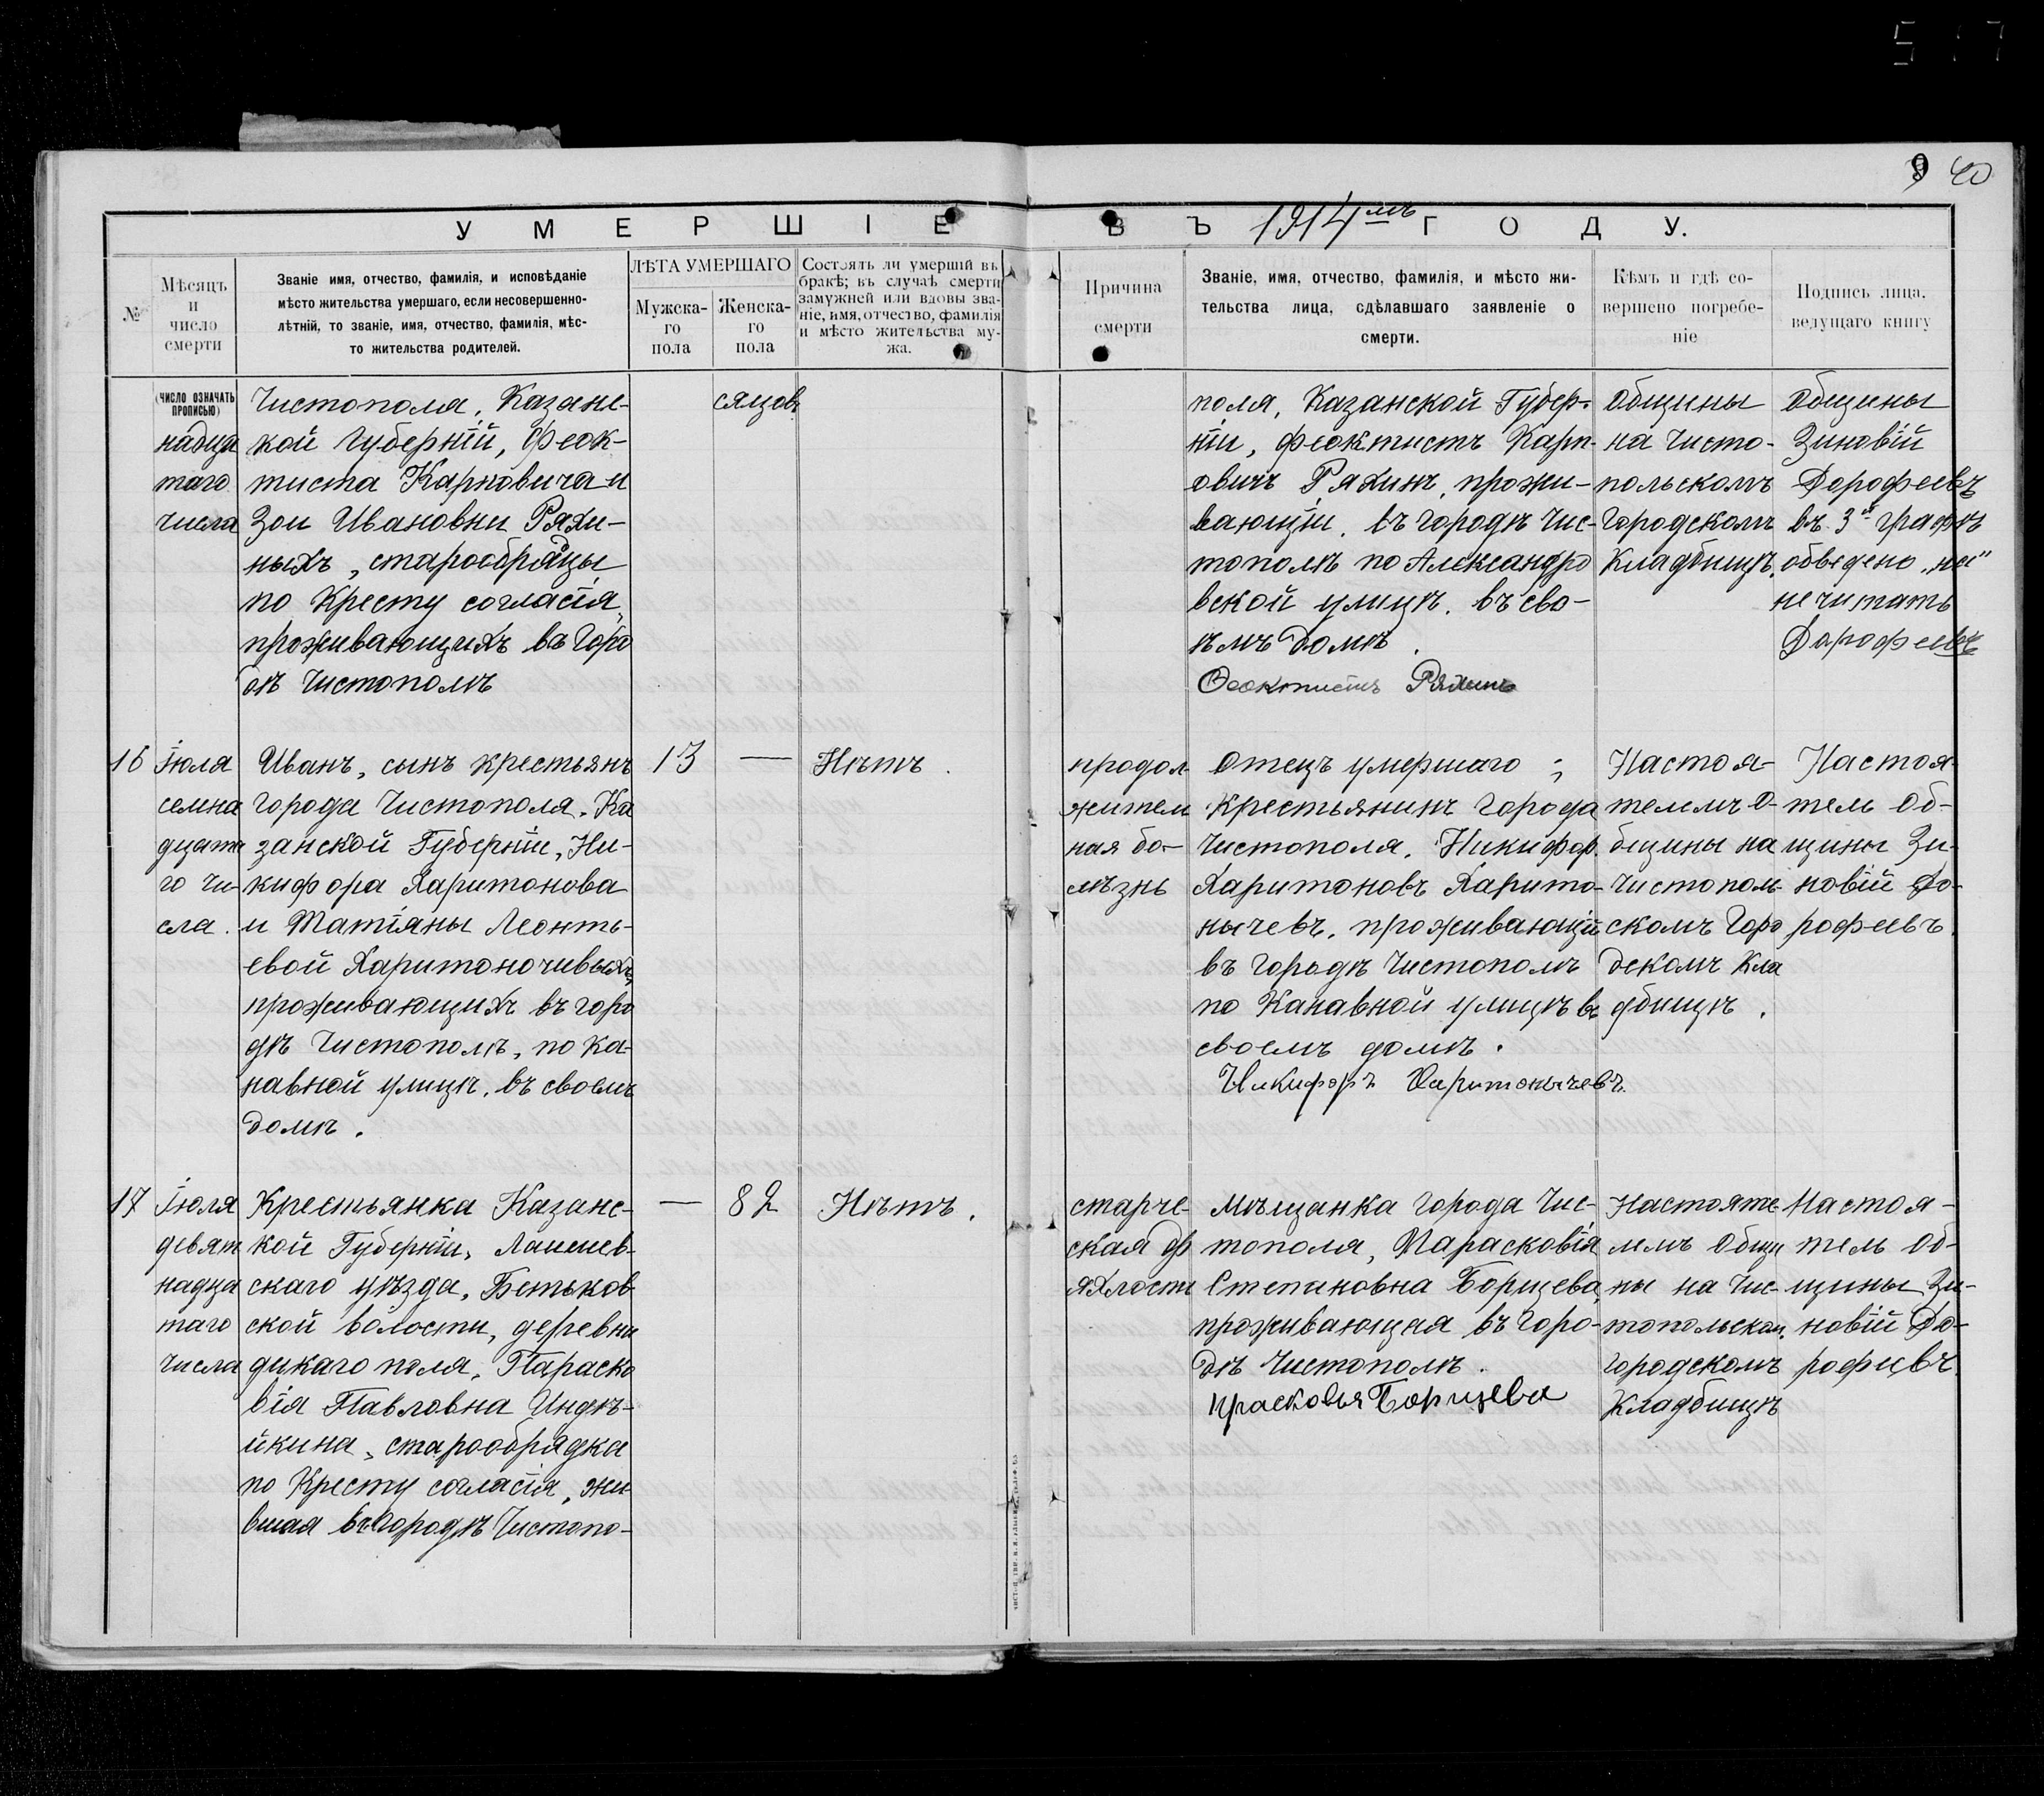 9 40
УМЕРШІЕ ВЪ 1914мъ ГОДУ.
№
Мѣсяцъ
и
число
смерти
Званіе имя, отчество, фамилія, и исповѣданіе
мѣсто жительства умершаго, если несовершенно-
лѣтній, то званіе, имя, отчество, фамилія, мѣс-
то жительства родителей.
ЛѢТА УМЕРШАГО
Мужска-
го
пола
Женска-
го
пола
Состоялъ ли умершій въ
бракѣ; въ случаѣ смерти
замужней или вдовы зва-
ніе, имя, отчество, фамилія
и мѣсто жительства му-
жа.
Причина
смерти
Званіе, имя, отчество, фамилія, и мѣсто жи-
тельства лица, сдѣлавшаго заявленіе о
смерти.
Кѣмъ и гдѣ со-
вершено погребе-
ніе
Подпись лица.
ведущаго книгу
(ЧИСЛО ОЗНАЧАТЬ
ПРОПИСЬЮ)
надца
таго
числа
Чистополя, Казанс-
кой Губерній, Феок-
тиста Карповича и
Зои Ивановны Ряхи-
ныхъ, старообрядцы
по Кресту согласія,
проживающихъ въ Горо
дѣ Чистополѣ
сяцовъ
поля, Казанской Губер-
ніи, Феоктистъ Карп-
овичъ Ряхинъ, прожи-
вающіи. въ городѣ Чис-
тополѣ по Александро
вской улицѣ. въ сво-
ѣмъ домѣ.
Ѳеоктистъ Ряхинъ
Общины
на Чисто-
польскомъ
Городскомъ
Кладбищѣ.
Общины
Зиновій
Дорофеевъ
въ 3й графѣ
обведено „на"
не читать
Дарофеевъ
16
Іюля
семна
дцата
го чи-
сла.
Иванъ, сынъ крестьянъ
города Чистополя. Ка
занской Губерніи, Ни-
кифора Харитонова
и Татіяны Леонть-
евой Харитоночивыхъ,
проживающихъ въ горо
дѣ Чистополѣ, по Ка-
навной улицѣ. въ своемъ
домѣ.
13
—
Нѣтъ.
продол-
жител
ная бо-
лѣзнь
Отецъ умершаго;
Крестьянинъ Города
Чистополя. Никифор.
Харитоновъ Харито-
нычевъ. проживающій
въ Городѣ Чистополѣ
по Канавной улицѣ въ
своемъ домѣ.
Никифоръ Харитонычевъ.
Настоя-
телемъ О-
бщины на
Чистополь-
скомъ Горо
дскомъ Кла
дбищѣ.
Настоя-
тель Об-
щины Зи-
новій До-
рофеевъ.
17
Іюля
девят
надца
таго
числа
Крестьянка Казанс-
кой Губерніи, Лаишев-
скаго уѣзда, Бетьков
ской волости, деревни
дикаго поля, Параско
вія Павловна Индѣ-
йкина, старообрядка
по Кресту согласія, жи
вшая въ Городѣ Чистопо-
—
82
Нѣтъ.
старче-
ская др
яхлость
Мѣщанка города Чис-
тополя, Парасковія
Степановна Борщева,
проживающая въ Горо-
дѣ Чистополѣ.
Прасковья Борщева
Настояте
лемъ Общи
ны на Чис-
топольском.
Городскомъ
Кладбищѣ
Настоя-
тель Об-
щины Зи-
новій До-
рофеевъ